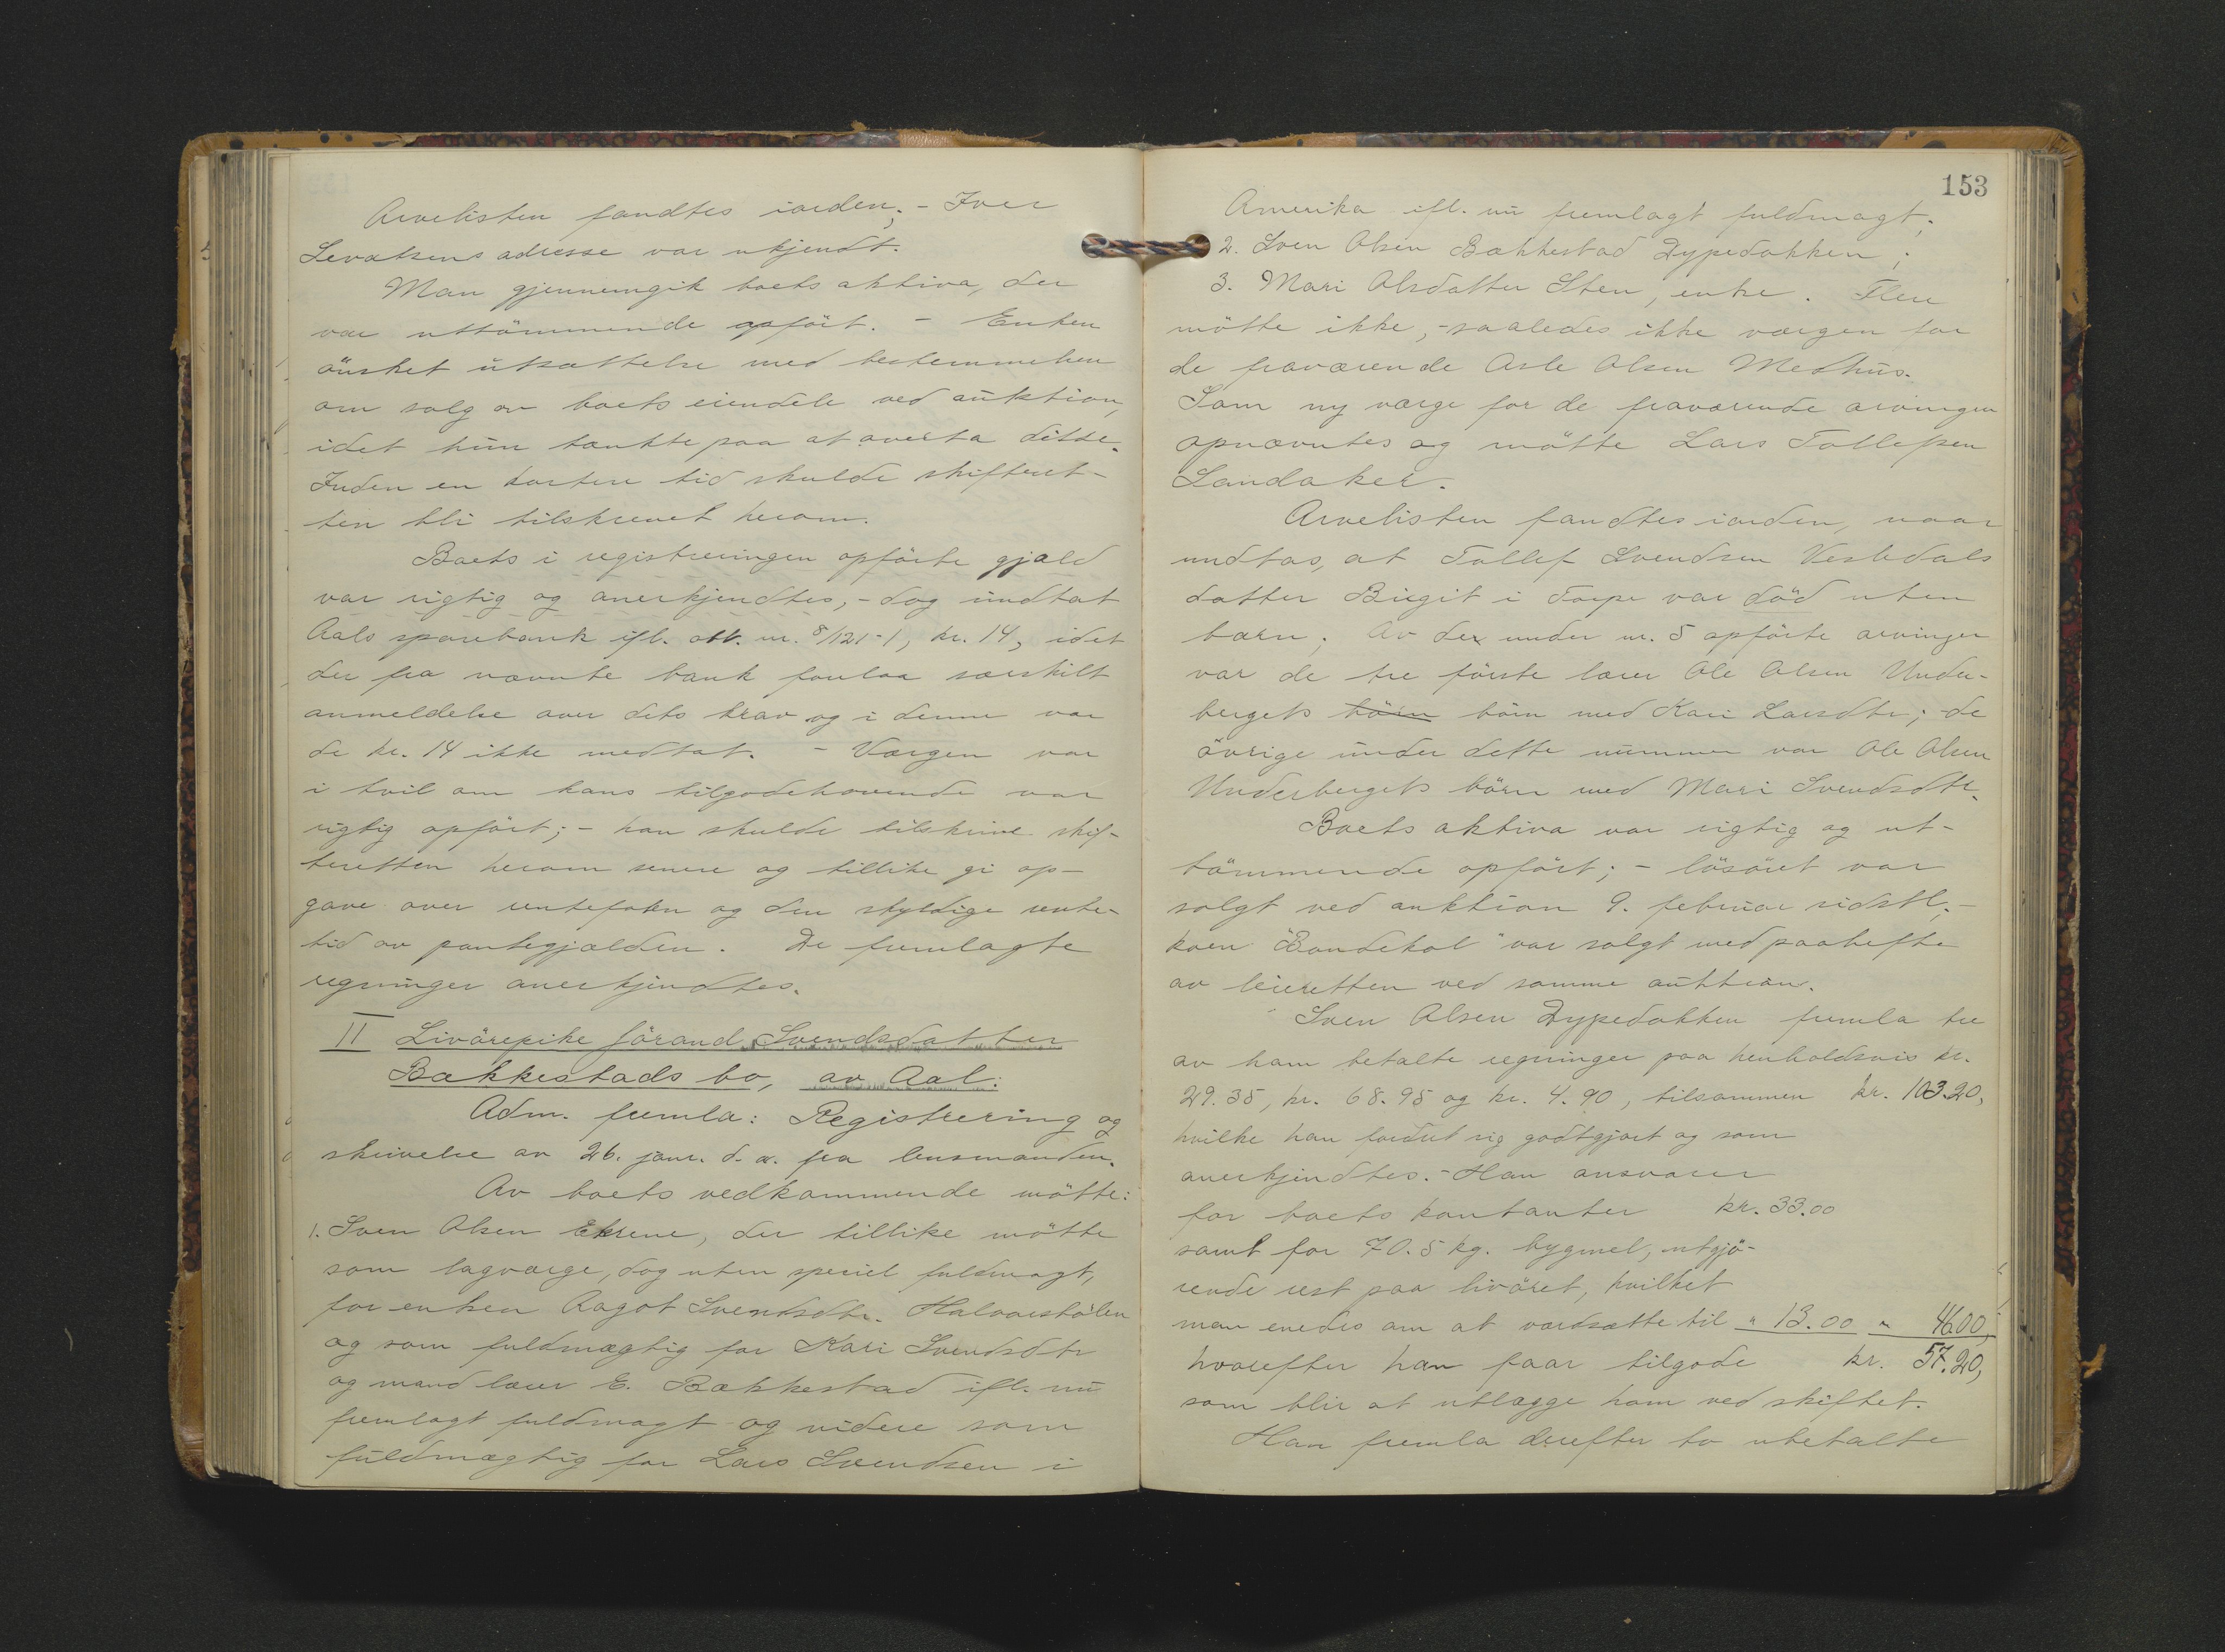 Arvelisten fandtes iorden; - Iver
Sevatsens adresse var ukjendt.
Man gjennemgik boets aktiva, der
var uttömmende opfört. - Enken
önsket utsættelse med bestemmelsen
om salg av boets eiendele ved auktion,
idet hun tænkte paa at overta dette.
Inden en kortere tid skulde skifteret-
ten bli tilskrevet herom.
Boets i registreringen opförte gjæld
var rigtig og anerkjendtes, - dog undtat
Aals sparebank ifl. obl. nr. 8/121-1, kr. 14, idet
der fra nævnte bank forelaa særskilt
anmeldelse over dets krav og i denne var
de kr. 14 ikke medtat. - Værgen var
i tvil om hans tilgodehavende var
rigtig opfört; - han skulde tilskrive skif-
teretten herom senere og tillike gi op-
gave over rentefoten og den skyldige rente-
tid av pantegjælden. De fremlagte
regninger anerkjendtes.
II Livörepike Jörand Svendsdatter
Bækkestads bo, av Aal:
Adm. fremla: Registrering og
skrivelse av 26. janr. d. a. fra lensmanden.
Av boets vedkommende mötte:
1. Sven Olsen Ekrene, der tillike mötte
som lagværge, dog uten speciel fuldmagt,
for enken Aagot Svendsdtr. Halvorstölen
og som fuldmægtig for Kari Svendsdtr
og mand lærer E. Bækkestad ifl. nu
fremlagt fuldmagt og videre som
fuldmægtig for Lars Svendsen i
153
Amerika ifl. nu fremlagt fuldmagt;
2. Sven Olsen Bækkestad Dypedokken;
3. Mari Olsdatter Sten, enke. Flere
mötte ikke, - saaledes ikke værgen for
de fraværende Asle Olsen Medhus.
Som ny værge for de fraværende arvinger
opnævntes og mötte Lars Tollefsen
Sandaker.
Arvelisten fandtes iorden, naar
undtas, at Tollef Svendsen Vestedals
datter Birgit i Torpe var död uten
barn; Av de under nr. 5 opförte arvinger
var de tre förste lærer Ole Olsen Under-
bergets börn börn med Kari Larsdtr; de
övrige under dette nummer var Ole Olsen
Underbergets börn med Mari Svendsdtr.
Boets aktiva var rigtig og ut-
tömmende opfört; - lösöret var
solgt ved auktion 9. februar sidstl. -
koen "Bondekol" var solgt med paahefte
av leieretten ved samme auktion.
Sven Olsen Dypedokken fremla tre
av ham betalte regninger paa henholdsvis kr.
29.35, kr. 68.95 og kr. 4.90, tilsammen kr. 103.20,
hvilke han fordret sig godtgjort og som
anerkjendtes. - Han ansvarer
for boets kontanter kr. 33.00
samt for 70.5 kg. bygmel, utgjö-
rende rest paa livöret, hvilket
man enedes om at værdsætte til " 13.00 " 46.00,
hvorefter han faar tilgode kr. 57.20,
som blir at utlægge ham ved skiftet.
Han fremla derefter to ubetalte